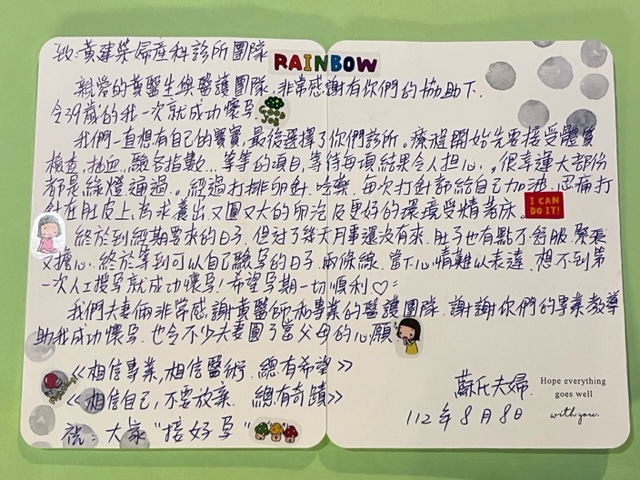 致:黃建榮婦產科診所團隊
RAINBOW
親愛的黃醫生與醫護團隊,非常感謝有你們的協助下.
令39歲的我一次就成功懷孕.
我們一直想有自己的寶寶,最後選擇了你們診所。療程開始先要接受體質
檢查,抽血,驗各指數...等等的項目,等待每項結果令人擔心.。很幸運大部份
都是綠燈通過.。經過打排卵針.吃藥.每次打針都給自己加油.忍痛打
針在肚皮上,為求養出又圓又大的卵泡及更好的環境受精著床。
I CAN
DO IT!
終於到經期要來的日子,但过了幾天月事還沒有來.肚子也有點不舒服.緊張
又擔心.終於等到可以自己驗孕的日子.兩條線.當下心情難以表達.想不到第
一次人工授孕就成功懷孕!希望孕期一切順利♡=
我們夫妻倆非常感謝黃醫師和專業的醫護團隊.謝謝你們的專業教導
助我成功懷孕.也令不少夫妻圓了當父母的心願
《相信專業,相信醫術.總有希望》
《相信自己,不要放棄.總有奇蹟》
祝:大家"接好孕"
蘇氏夫婦.
112年8月8日
Hope everything
goes well
with you.